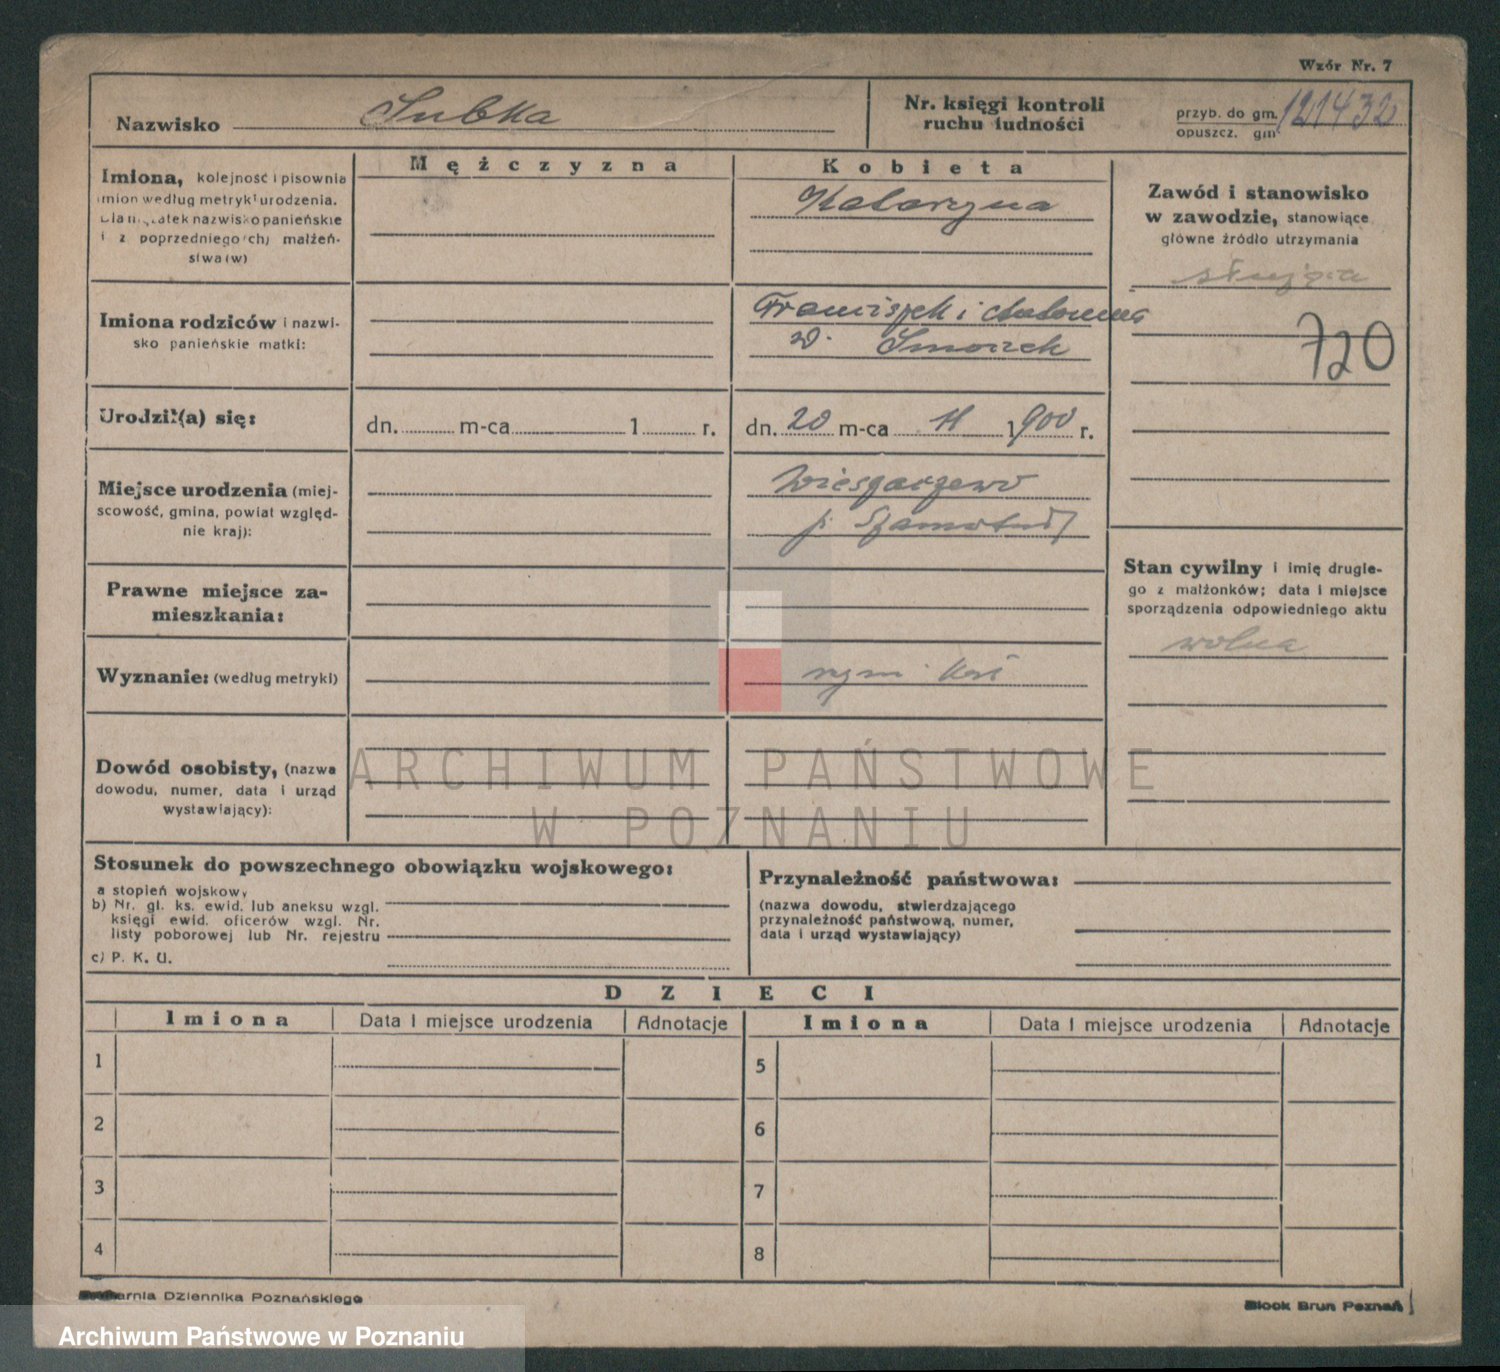 Wzór Nr. 7
Nazwisko Subka
Nr. księgi kontroli ruchu ludności
przyb. do gm. 121432
opuszcz. gm.
Mężczyzna
Kobieta
Imiona, kolejność i pisownia
imion według metryki urodzenia.
Dla mężatek nazwisko panieńskie
i z poprzedniego (ch) małżeń-
stwa (w)
Katarzyna
Zawód i stanowisko
w zawodzie, stanowiące
główne źródło utrzymania
służąca
720
Imiona rodziców i nazwi-
sko panieńskie matki:
Franciszek i
d.
Urodził(a) się:
dn. m-ca 1 r.
dn. 20 m-ca 11 1900 r.
Miejsce urodzenia (miej-
scowość, gmina, powiat względ-
nie kraj):
p. Szamotuły
Stan cywilny i imię drugie-
go z małżonków; data i miejsce
sporządzenia odpowiedniego aktu
wolna
Prawne miejsce za-
mieszkania:
Wyznanie: (według metryki)
rzym. kat
Dowód osobisty, (nazwa
dowodu, numer, data i urząd
wystawiający):
ARCHIWUM PAŃSTWOWE
W POZNANIU
Stosunek do powszechnego obowiązku wojskowego:
a stopień wojskowy
b) Nr. gl. ks. ewid. lub aneksu wzgl.
księgi ewid. oficerów wzgl. Nr.
listy poborowej lub Nr. rejestru
c) P. K. U.
Przynależność państwowa:
(nazwa dowodu, stwierdzającego
przynależność państwową, numer,
data i urząd wystawiający)
DZIECI
Imiona Data i miejsce urodzenia Adnotacje Imiona Data i miejsce urodzenia Adnotacje
1 5
2 6
3 7
4 8
Drukarnia Dziennika Poznańskiego
Block Brun Poznań
Archiwum Państwowe w Poznaniu